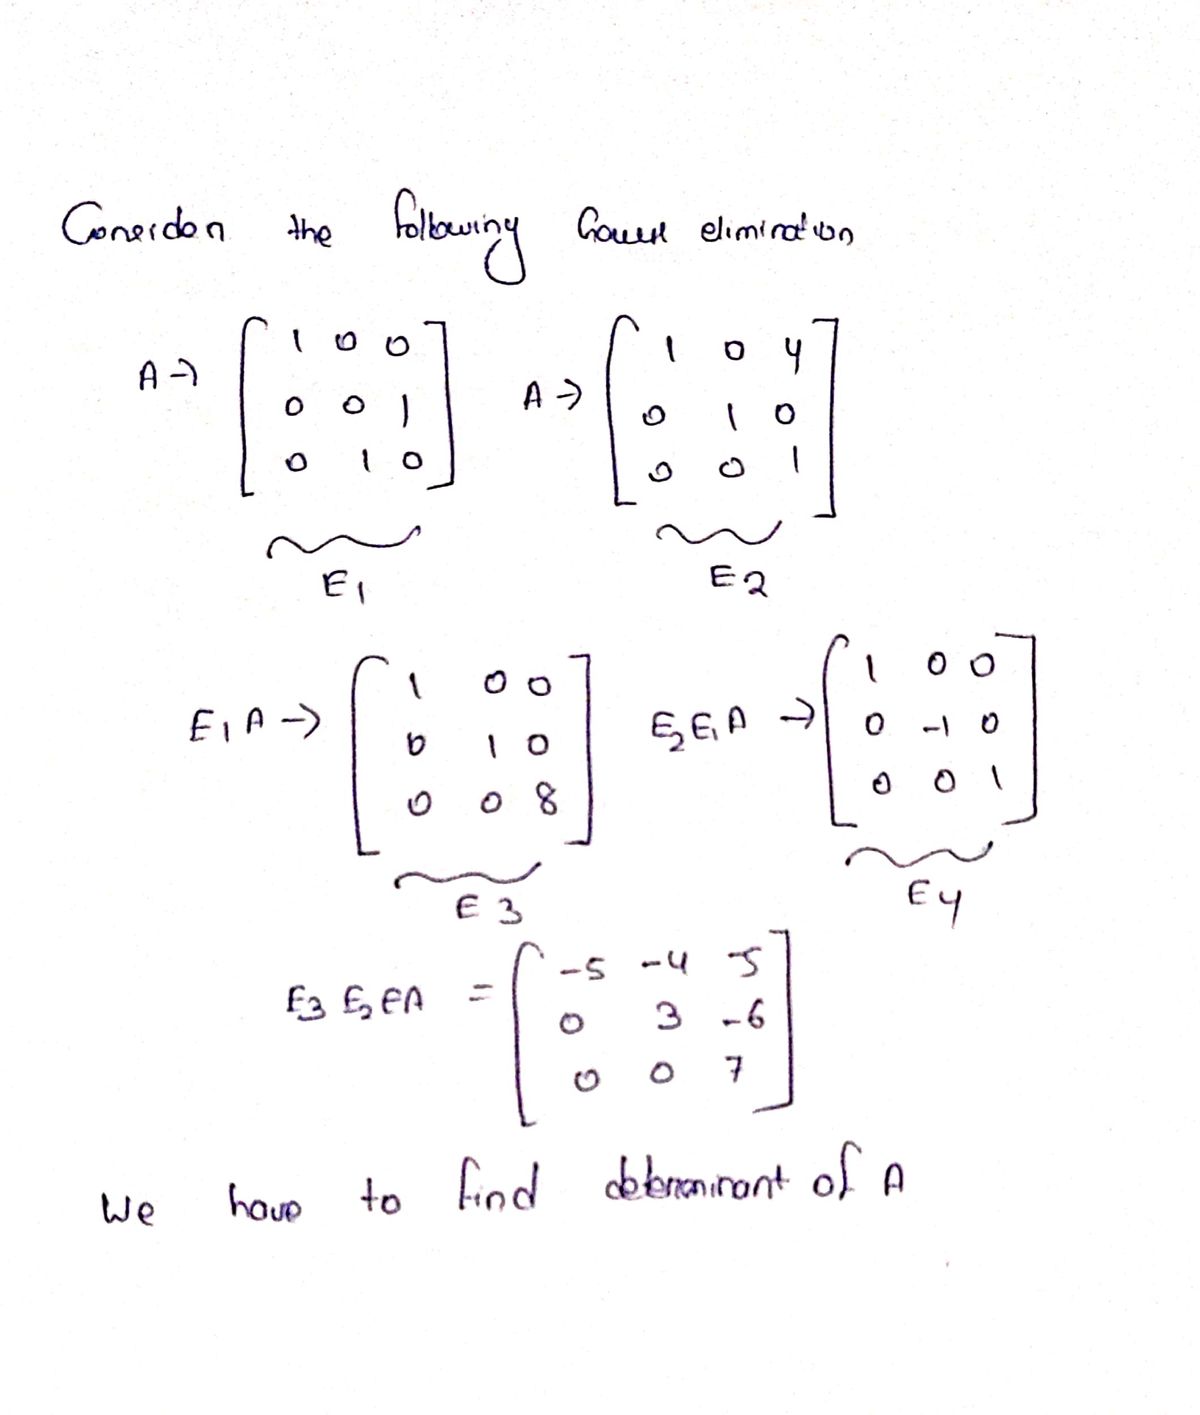 Consider the following Gauss elimination
A → [ 1 0 0 A → [ 1 0 4
0 0 1 0 1 0
0 1 0 ] 0 0 1 ]
E1 E2
E1 A → [ 1 0 0 E2 E1 A → [ 1 0 0
0 1 0 0 -1 0
0 0 8 ] 0 0 1 ]
E3 E4
E3 E2 EA = [ -5 -4 -5
0 3 -6
0 0 7 ]
We have to find determinant of A